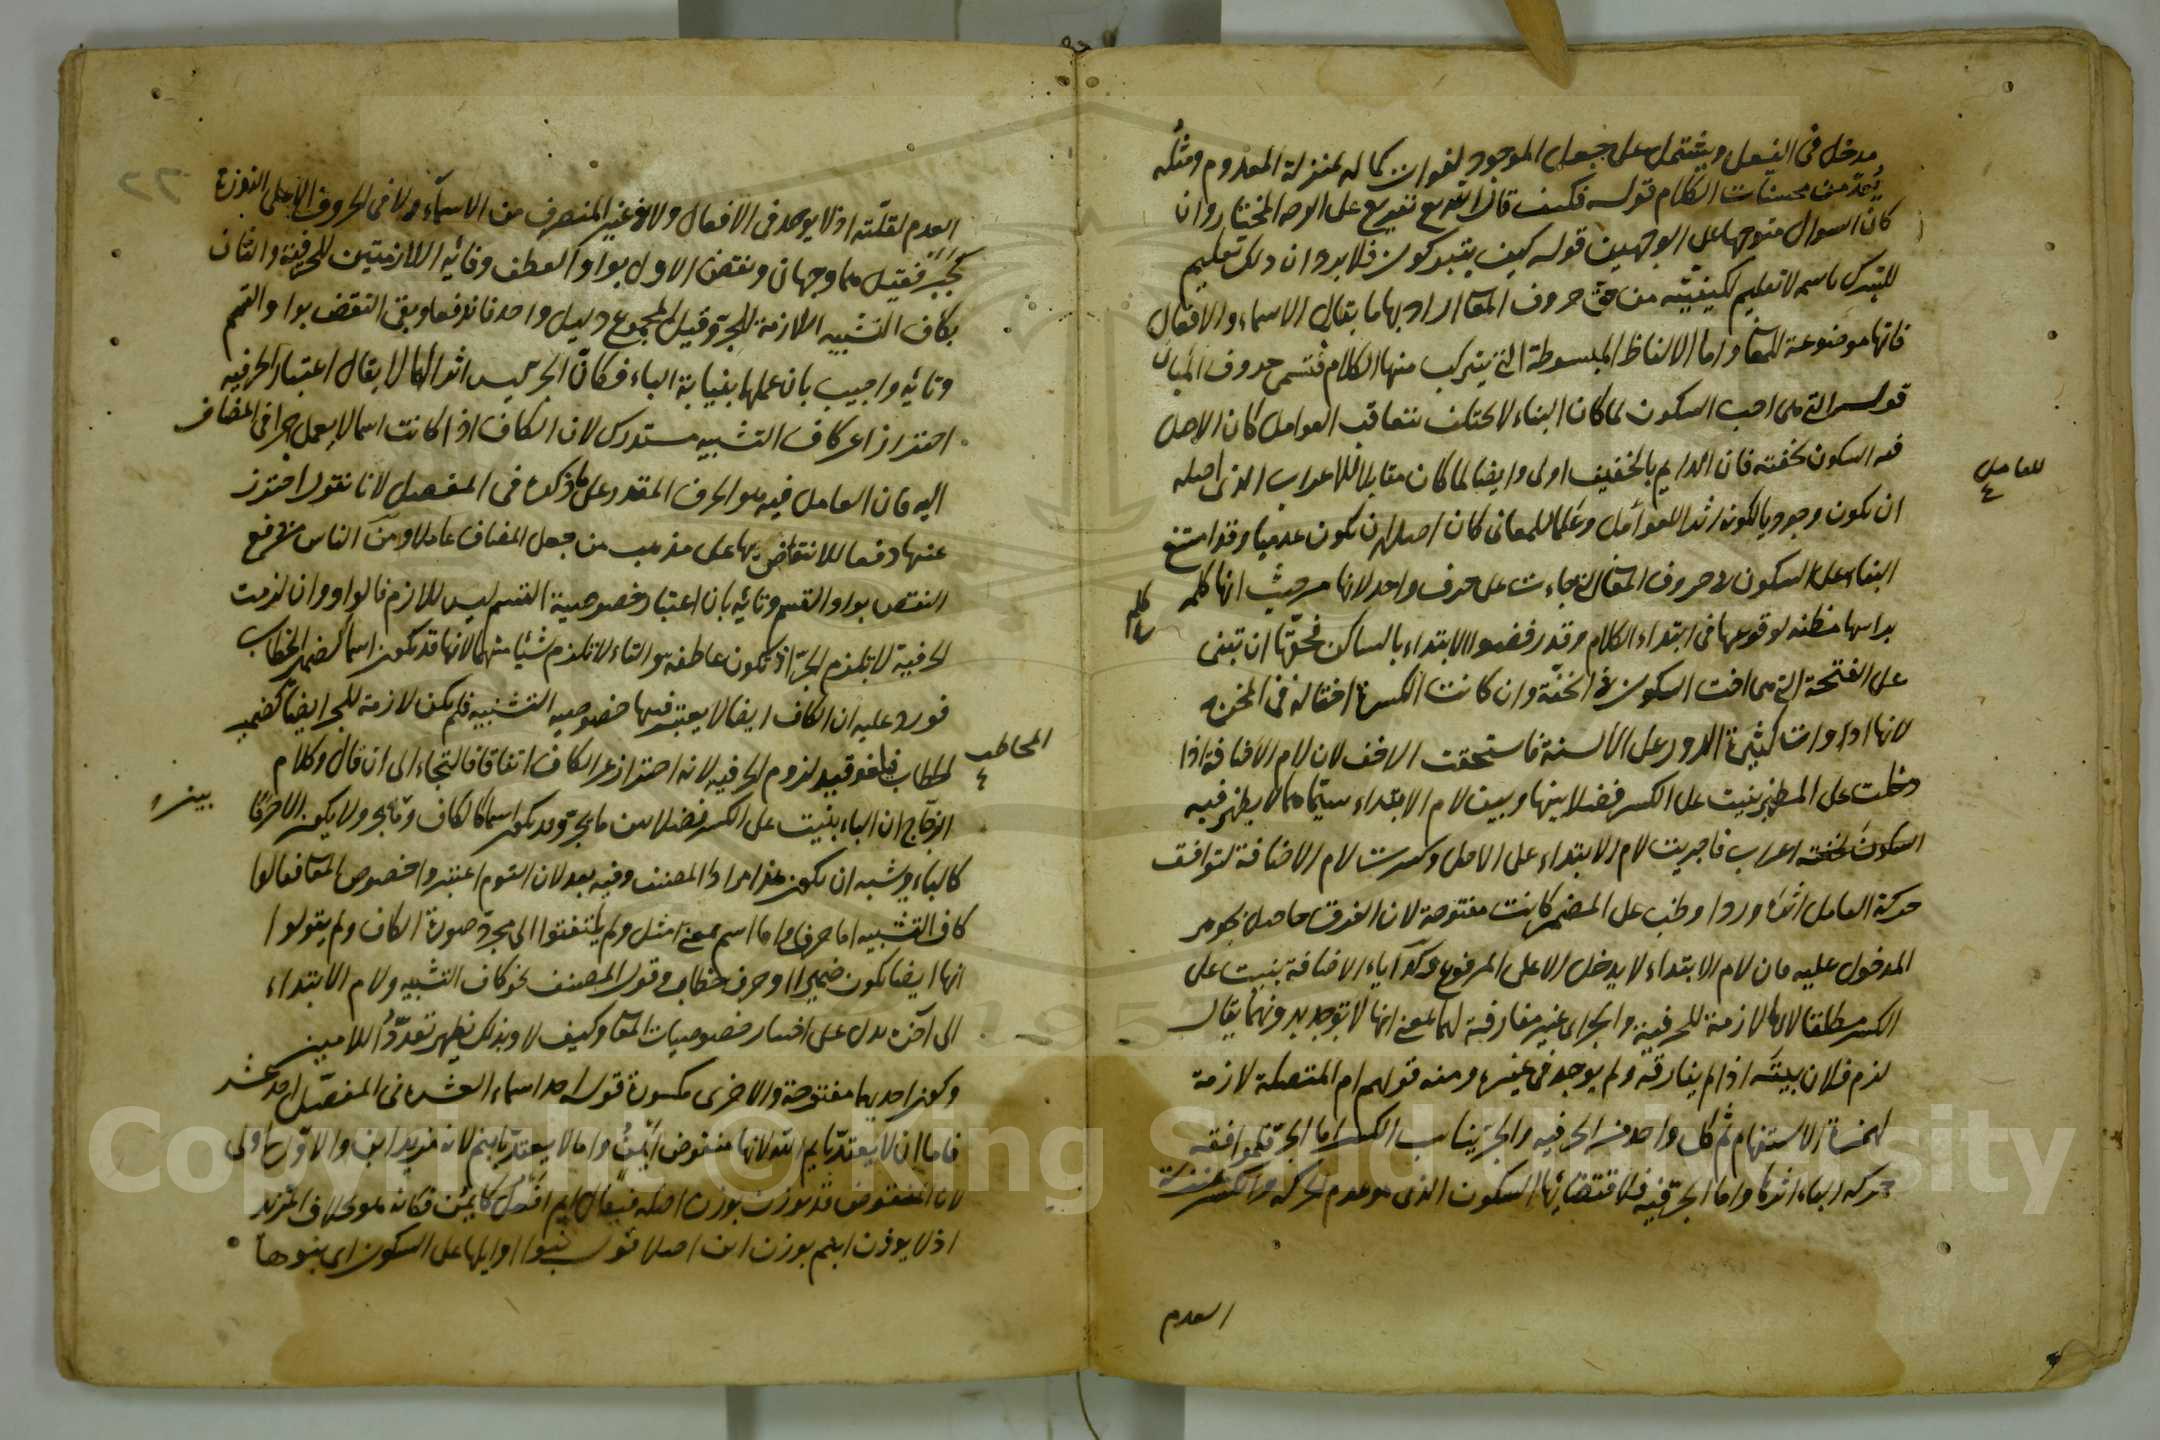 مدخل فى الفعل ويشتمل على جعل الموجود لفوات كماله بمنزلة المعدوم ومثله
يُعدّ من محسنات الكلام قوله فكيف قال الله تع تفريع على الوجه المختار وان
كان السوال متوجها على الوجهين قوله كيف يتبركون فلا يرد ان ذلك تعليم
للتبرك باسمه لا تعليم لكيفيته من حق حروف المعانى اراد بها ما يقابل الاسماء والافعال
فانها موضوعة للمعانى واما الالفاظ المبسوطة التى يتركب منها الكلام فتسمى حروف المبانى
قوله التى هى اخت السكون لما كان البناء لا يختلف بتعاقب العوامل كان الاصل
فيه السكون لخفته فان الدايم بالخفيف اولى وايضا لما كان مقابلا للاعراب الذى اصله
ان يكون وجوديا لكونه اثرا للعوامل وعلما للمعانى كان اصله ان يكون عدميا وقد امتنع
البناء على السكون فى حروف المعانى التى جاءت على حرف واحد لانها من حيث انها كلمة
براسها مظنة لوقوعها فى ابتداء الكلام وقد رفضوا الابتداء بالساكن فحقّها ان تبنى
على الفتحة التى هى اخت السكون فى الخفّة وان كانت الكسرة اختا له فى المخرج
لانها ادوات كثيرة الدور على الالسنة فاستحقت الاخف لان لام الاضافة اذا
دخلت على المظهر بنيت على الكسر فصلا بينها وبين لام الابتداء سيّما مما لا يظهر فيه
اعراب فاجريت لام الابتداء على الاصل وكسرت لام الاضافة لتوافق
حركة العامل اثره واذا دخلت على المضمر كانت مفتوحة لان الفرق حاصل بجوهر
المدخول عليه فان لام الابتداء لا يدخل الا على المرفوع وكذا ياء الاضافة بنيت على
الكسر مطلقا لانها لازمة للحرفية والجر اى غير مفارقة لهما بمعنى انها لا توجد بدونهما يقال
لزم فلان بيته اذا لم يفارقه ولم يوجد فى غيره ومنه قولهم ام المتصلة لازمة
لهمزة الاستفهام ثم كل واحد من الحرفيه والجر يناسب الكسر اما الجر فلموافقة
حركة الباء اثرها واما الحرفية فلاقتضائها السكون الذى هو عدم الحركة والكسر بمنزلة
العدم
للعامل
كلم
العدم لقلّته اذ لا يوجد فى الافعال ولا فى غير المنصرف من الاسماء ولا فى الحروف الا على الندرة
كجَيْرِ فقيل هما وجهان ونقض الاول بواو العطف وفائه اللازمتين للحرفية والثانى
بكاف التشبيه اللازمة للجر وقيل المجموع دليل واحد فاندفعا وبقى النقض بواو القسم
وتائه واجيب بان عملها بنيابة الباء فكان الجر ليس اثرا لها لا يقال اعتبار الحرفيه
احترازا عن كاف التشبيه مستدرك لان الكاف اذا كانت اسما لا يعمل جرا فى المضاف
اليه فان العامل فيه هو الحرف المقدر على ما ذكره فى المفصل لانا نقول احترز
عنها دفعا للانتقاض بها على مذهب من جعل المضاف عاملا ومن الناس من دفع
النقض بواو القسم وتائه بان اعتبار خصوصية القسم ليس للازم قالوا وان لزمت
الحرفية لا تلزم الجر اذ تكون عاطفة والتاء لا تلزم شيئا منهما لانها قد تكون اسما كضمير الخطاب
فورد عليه ان الكاف ايضا لا يعتبر فيها خصوصية التشبيه فلم يكن لازمة للجر ايضا كضمير
الخطاب فلغو قيد لزوم الحرفيه لانه احتراز عن الكاف اتفاقا فالتجاء الى ان قال وكلام
الزجّاج ان الباء بنيت على الكسر فصلا بين ما يجرّ وقد يكون اسما كالكاف وما يجر ولا يكون الا حرفا
كالباء ويشبه ان يكون هذا مراد المصنف وفيه بعد لان القوم اعتبروا خصوص المعانى فقالوا
كاف التشبيه اما حرف واما اسم بمعنى مثل ولم يلتفتوا الى مجرّد صورة الكاف ولم يقولوا
انها ايضا يكون ضميرا او حرف خطاب وقول المصنف نحو كاف التشبيه ولام الابتداء
الى آخره يدل على اعتبار خصوصيات المعانى وكيف لا وبذلك يظهر تعدّد اللامين
وكون احديهما مفتوحة والاخرى مكسورة قوله احد اسماء العشرة فى المفصّل احد عشر
فاما ان لا يعتدّ بايم الله لانها منقوص ايمن واما لا يعتدّ بابنم لانه مزيد ابن والاول اولى
لان المنقوص قد يوزن بوزن اصله فيقال ايم افعل كايمن فكانه هو بخلاف المزيد
اذ لا يوزن ابنم بوزن ابن اصلا قوله بنوا اوايلها على السكون اى بنوها
المخاطب